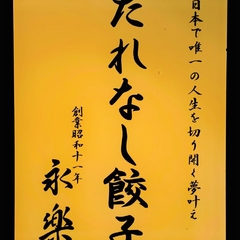 日本で唯一の人生を切り開く夢叶え
たれなし餃子
創業昭和十一年
永樂